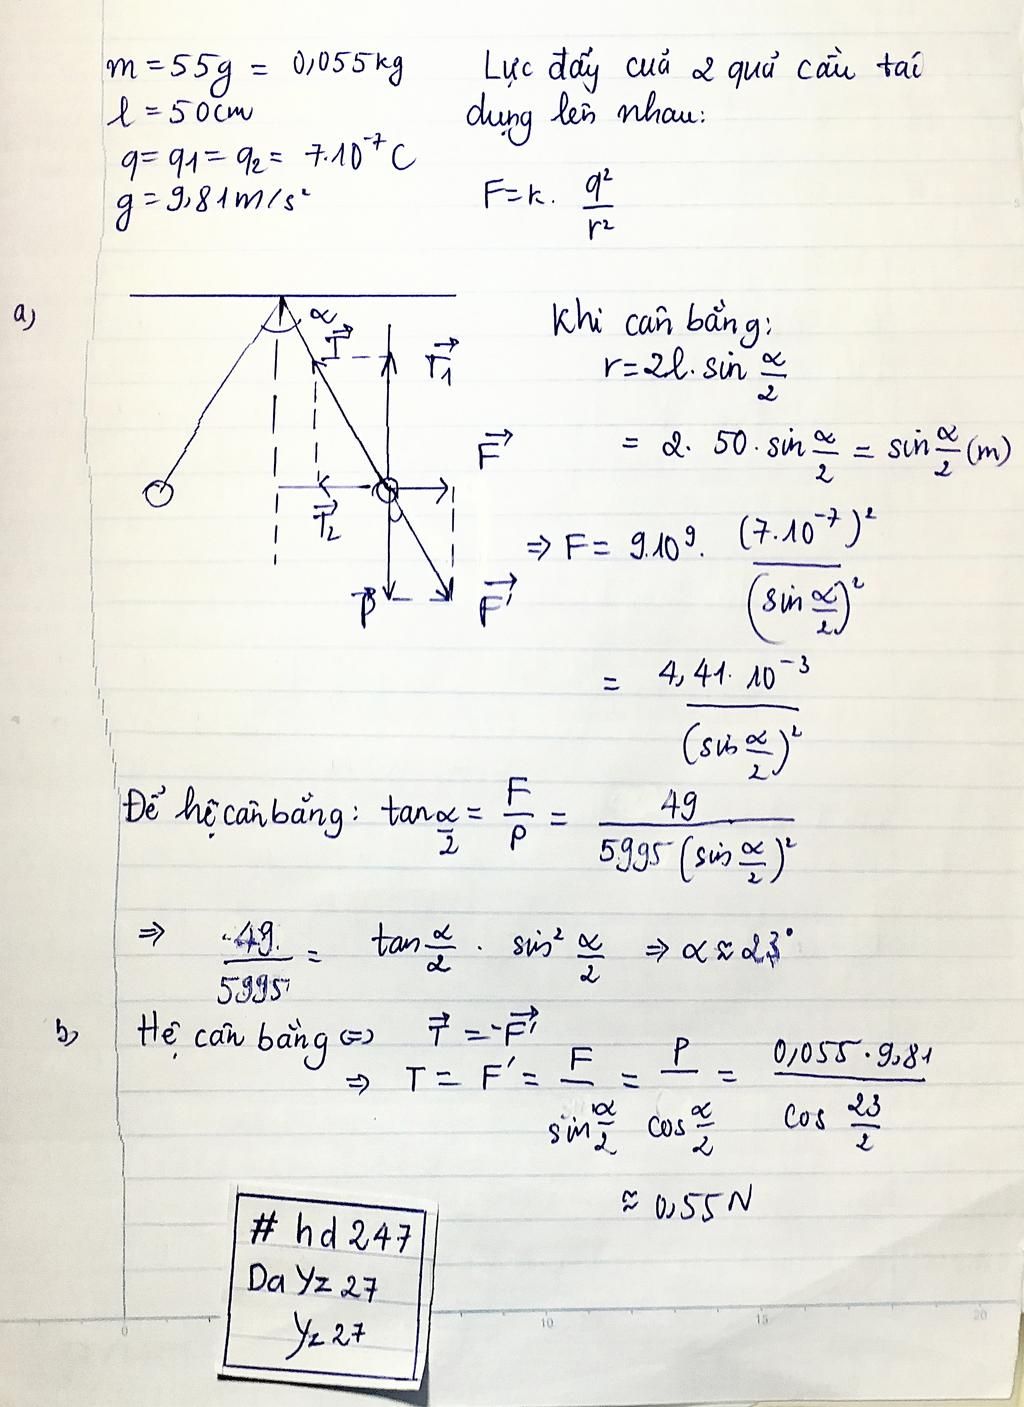 m = 55g = 0,055kg
l = 50cm
q = q1 = q2 = 7.10⁻⁷ C
g = 9,81m/s²
Lực đẩy cuả 2 quả cầu tać
dụng lên nhau:
F = k. q²/r²
a,
α
T⃗
T⃗1
F⃗
T⃗2
P⃗
F⃗'
Khi cân bằng:
r = 2l. sin α/2
= 2. 50. sin α/2 = sin α/2 (m)
⇒ F = 9.10⁹. (7.10⁻⁷)²/(sin α/2)²
= 4,41. 10⁻³/(sin α/2)²
Để hệ cân bằng: tan α/2 = F/P = 49/5995 (sin α/2)²
⇒ 49/5995 = tan α/2 . sin² α/2 ⇒ α ≈ 23°
b, Hệ cân bằng ⇔ T⃗ = -F⃗'
⇒ T = F' = F/sin α/2 = P/cos α/2 = 0,055.9,81/cos 23/2
≈ 0,55N
# hd247
Da Yz 27
Yz 27
0 10 15 20